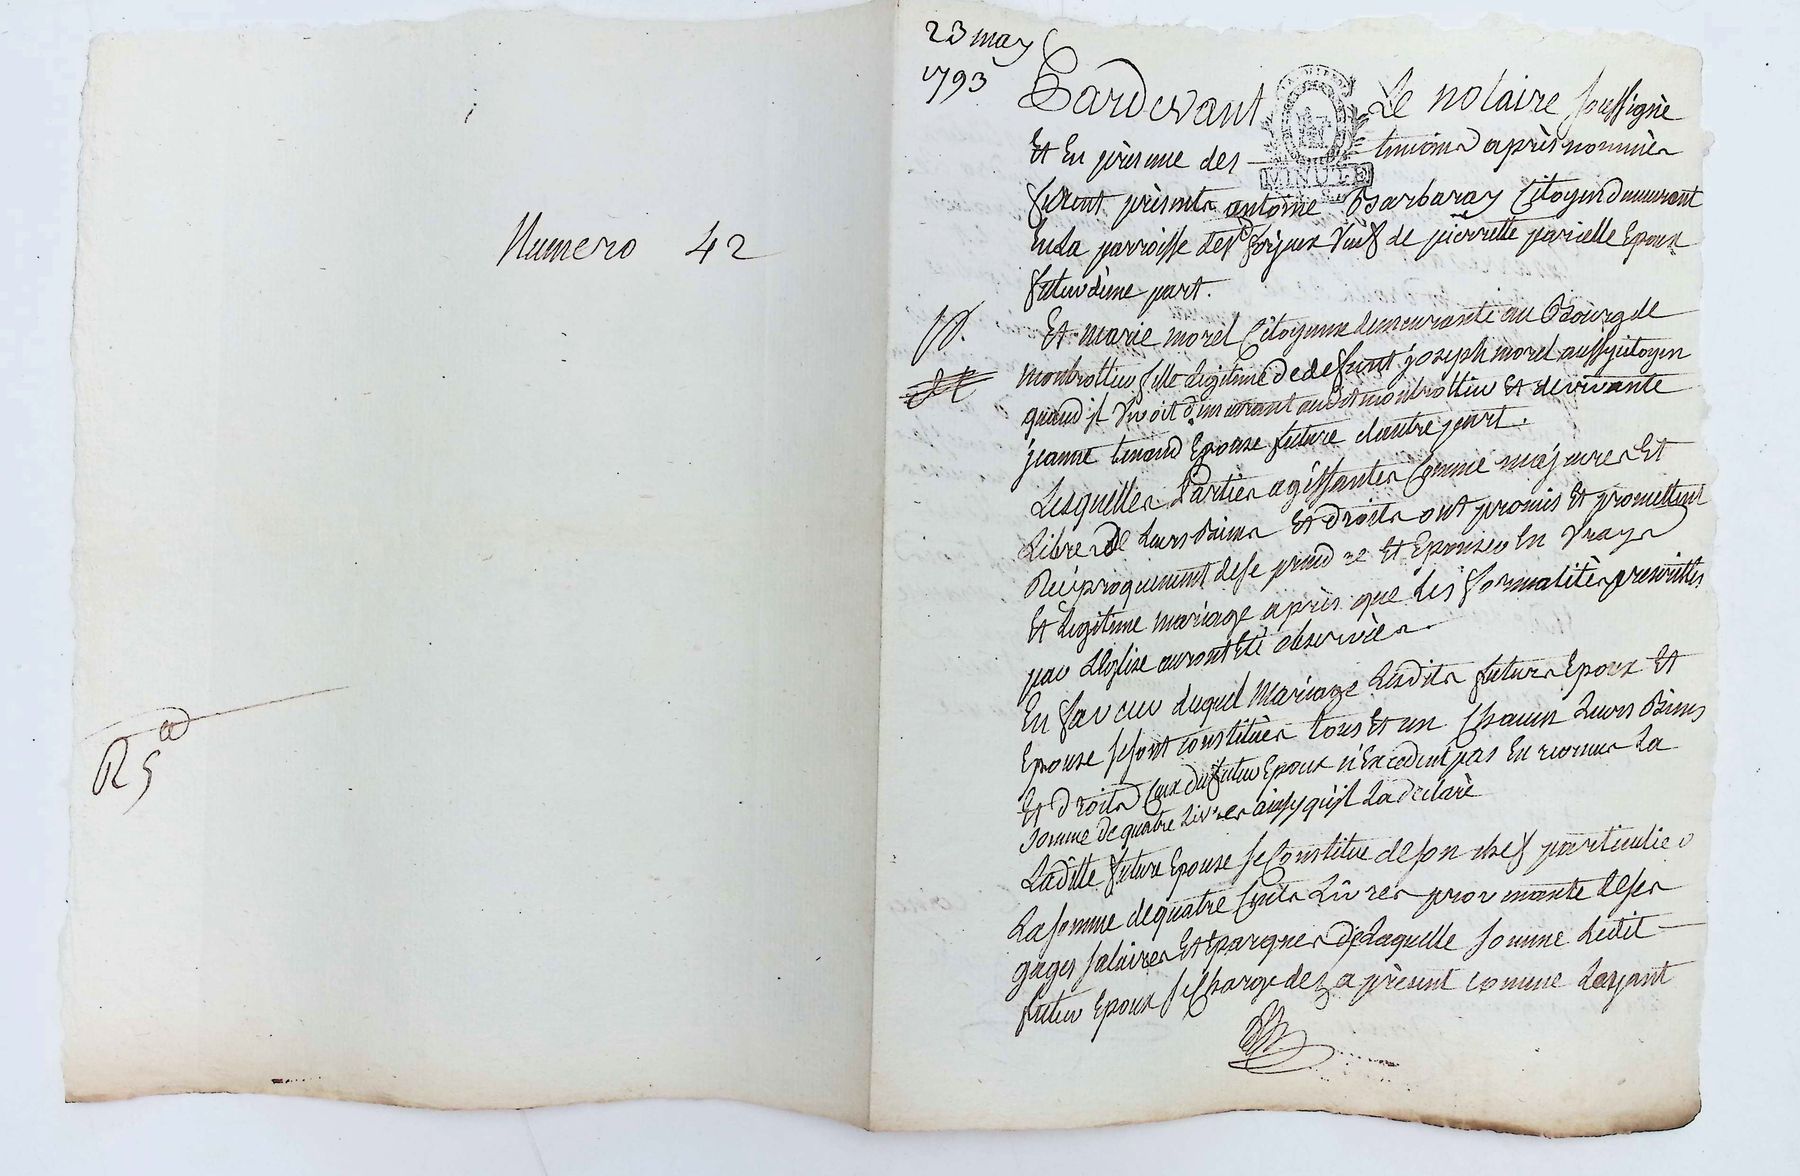 Numero 42
R 5
23 may
1793
Pardevant Le notaire soussigné
MINUTE
Et En présence des temoins après nommés
furent présents antoine Barbaray Citoyen demeurant
En La parroisse de st forjeux Veuf de pierrette Epoux
futur d'une part.
Et marie morel Citoyenne demeurante au Bourg de
montrottier fille Legitime de deffunt joseph morel aussy citoyen
quand il vivoit demeurant audit montrottier Et de vivante
jeanne Epouse future d'autre part.
Lesquelles Parties agissantes Comme majeures Et
Libres de Leurs Biens Et droits ont promis Et promettent
Reciproquement de se prendre Et Epouser En vray
Et Legitime mariage après que Les formalités prescrittes
par L'Eglise auront Eté observées
En faveur duquel Mariage Lesdits futurs Epoux Et
Epouse se sont constitués tous Et un Chacun Leurs Biens
Et droits Ceux du futur Epoux n'Excedent pas En revenu La
somme de quatre Livres ainsy qu'jl La declaré
Laditte future Epouse se Constitue de son chef particulier
La somme de quatre Cents Livres provenante de ses
gages salaires Et Epargnes de Laquelle somme Ledit
futur Epoux se Charge dez a présent comme L'ayant